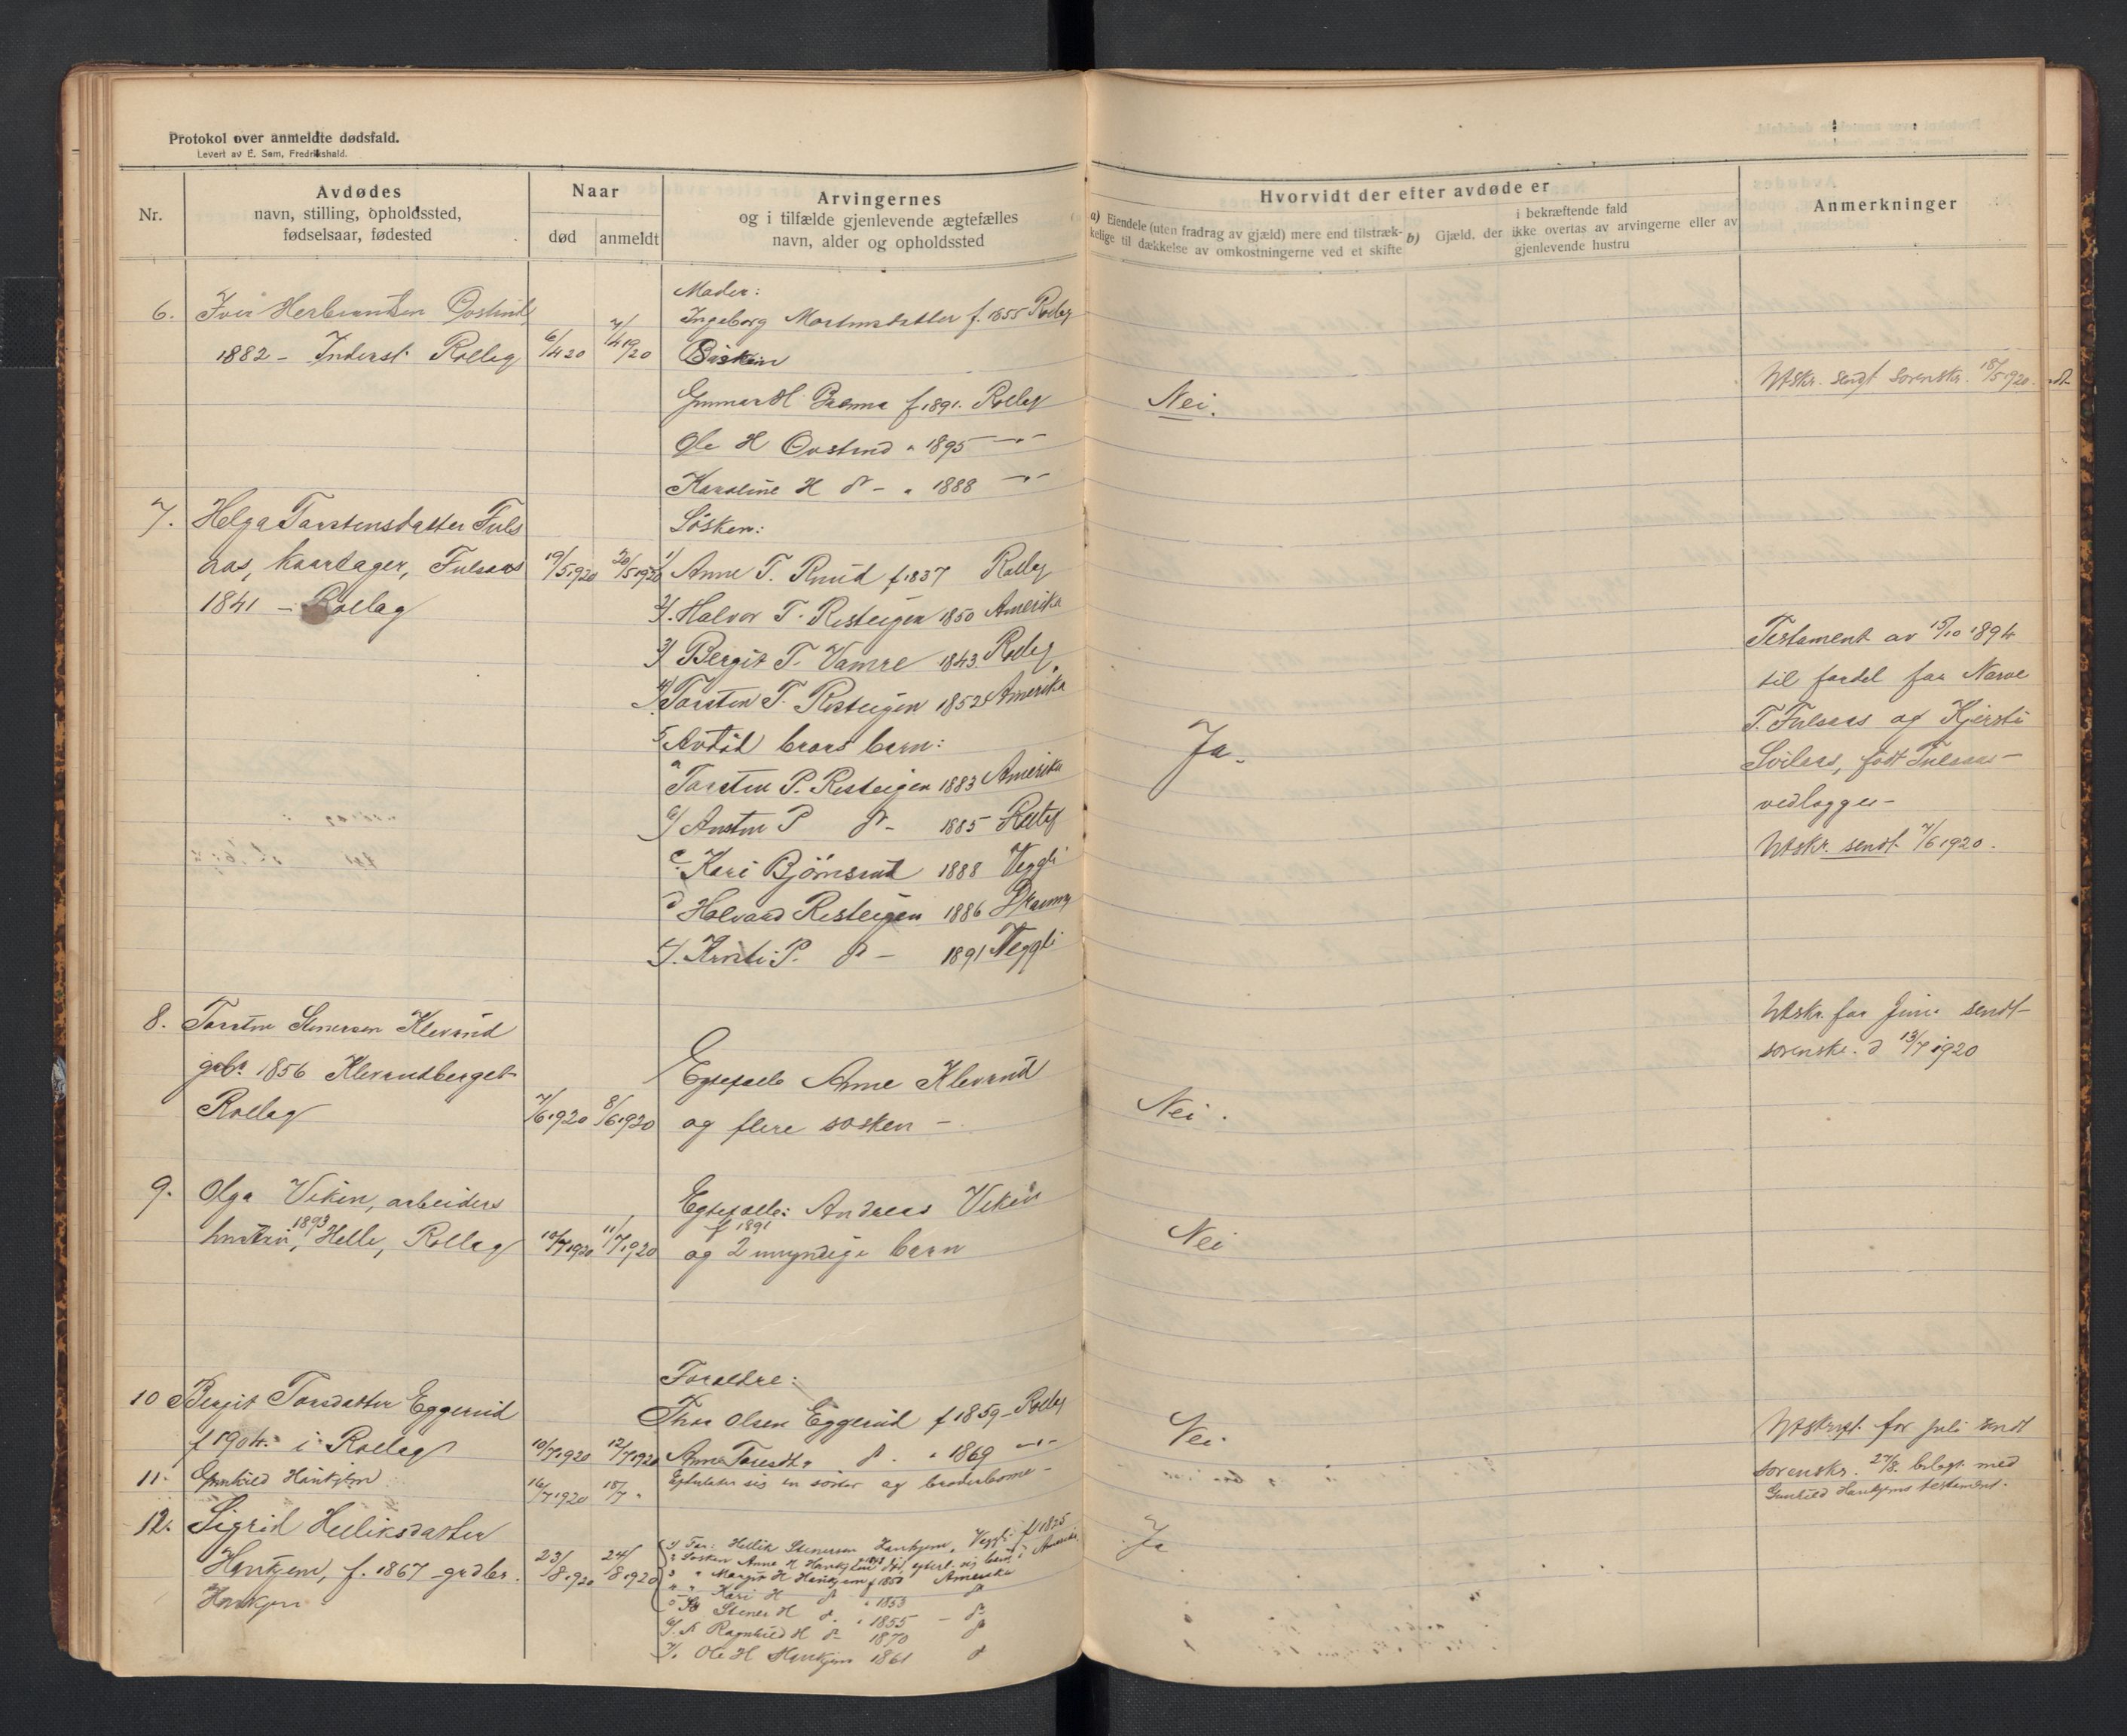 Protokol over anmeldte dødsfald.
Levert av E. Sem, Fredrikshald.
Nr.
Avdødes
navn, stilling, opholdssted,
fødselsaar, fødested
Naar
død
anmeldt
Arvingernes
og i tilfælde gjenlevende ægtefælles
navn, alder og opholdssted
Hvorvidt der efter avdøde er
a) Eiendele (uten fradrag av gjæld) mere end tilstræk-
kelige til dækkelse av omkostningerne ved et skifte
b) Gjæld, der i bekræftende fald ikke overtas av arvingerne eller av gjenlevende hustru
Anmerkninger
6. Iver Herbrandsen
1882 - Inderst. Rollag 6/4 20 7/4 1920
Moder:
Ingeborg Mortensdatter f. 1855 Rollag
Søsken
Gunnar H f 1891. Rollag
Ole H " 1895 -"-
Karoline H do - " 1888 -"-
Nei.
Utskr. sendt sorenskr. 18/5 1920.
7. Helga Tarstensdatter Fuls
aas, kaartager, Fulsaas 19/5 1920 20/5 1920
1841 - Rollag
Søsken:
1/ Anne T. Ruud f. 1837 Rollag
2/. Halvor T. Risteigen 1850 Amerika
3/ Bergit T. Vamre 1843. Rollag
4/ Tarsten T. Risteigen 1852 Amerika
5 Avdød brors barn:
a Tarsten P. Risteigen 1883 Amerika
b/ Austen P do - 1885 Rollag
c. Kari Bjørnsrud 1888 Veggli
d Halvard Risteigen 1886
e/. Kristi P. do - 1891 Veggli
Ja.
Testament av 15/10 1894
til fordel for Narve
T. Fulsaas og Kjersti
født Fulsaas -
vedlægges -
Utskr. sendt. 7/6 1920.
8. Tarsten Stenersen Klevrud
gbr. 1856 Klevrudberget
Rollag 7/6 1920 8/6 1920
Egtefælle Anne Klevrud
og flere søsken -
Nei.
Utskr. for Juni sendt
sorenskr. d 13/7 1920
9. Olga Viken, arbeiders
hustru, 1893 Helle, Rollag 10/7 1920 11/7 1920
Egtefælle: Andreas Viken
f 1891
og 2 umyndige barn
Nei
10 Bergit Torsdatter Eggerud
f 1904. i Rollag 10/7 1920 12/7 1920
Foreldre:
Thor Olsen Eggerud f 1859 - Rollag
Anne do. " 1869 -"-
Nei.
Utskript. for juli sendt
sorenskr. 27/8. bilagt med
Gunhild testament.
11. Gunhild 16/7 1920 18/7 "
Efterlater sig en søster og broderbørn -
12. Sigrid Helliksdatter
f. 1867 grdbr. 23/8 1920 24/8 1920
1/ Far: Hellik Stenersen Veggli f 1825
2 Søsken Anne H død, efterl. sig barn i Amerika
3 " Margit H f 1850 Amerika
4 " Kari H do " 1853 do
5 Stener H do. " 1855 - do
6/. Ragnhild H do 1870 do
7/. Ole H 1861 do
Ja